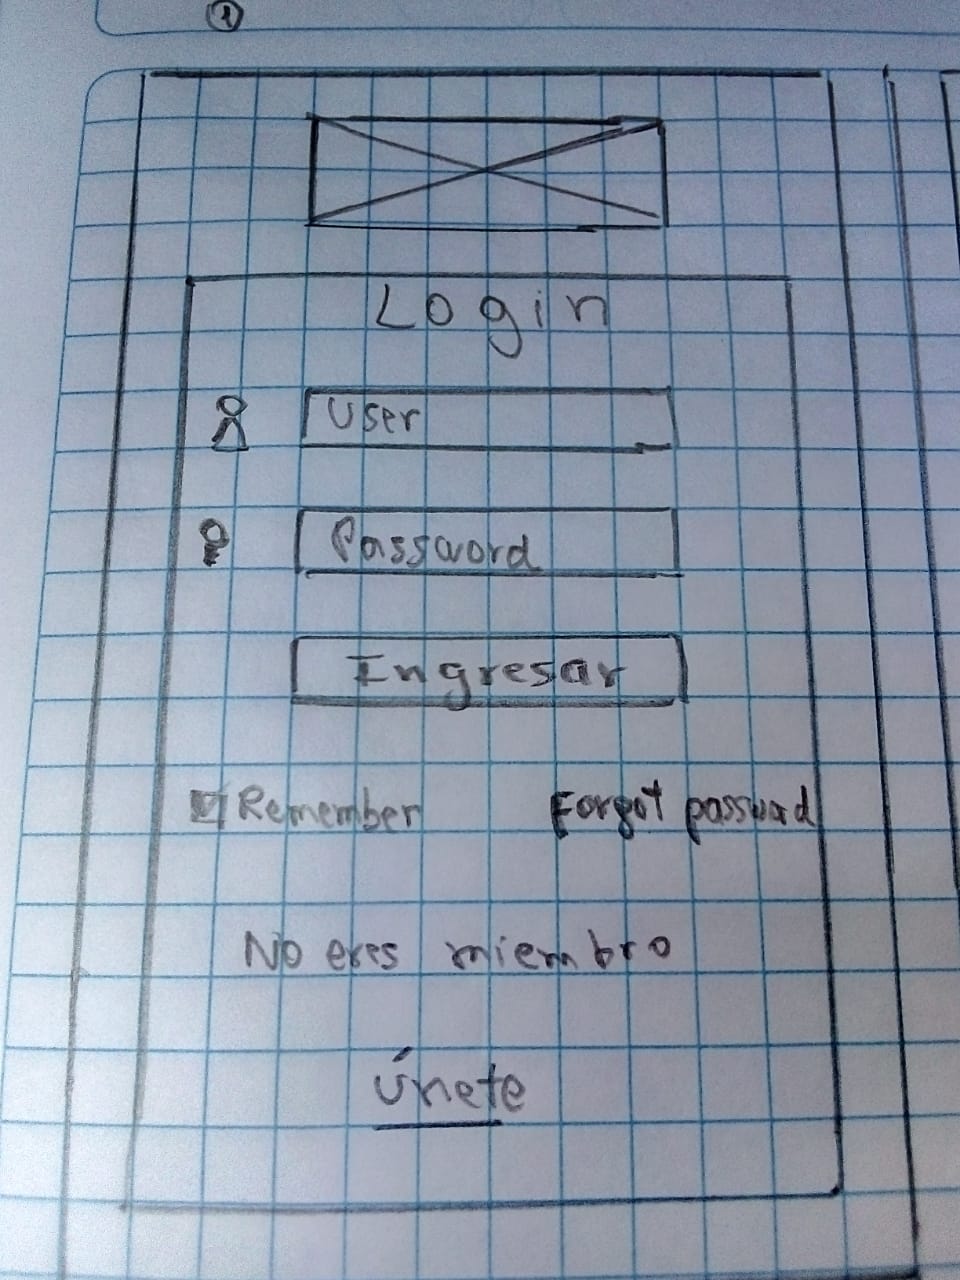 1
Login
User
Password
Ingresar
Remember Forgot passward
No eres miembro
únete